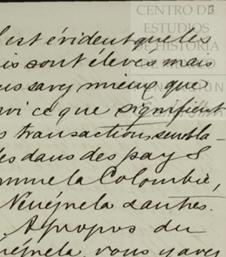 CENTRO DE
ESTUDIOS
DE HISTORIA
est évident que les
is sont élevés, mais
us savez mieux que
vi ce que signifient
s transactions sembla-
les dans des pays
omme la Colombie,
Vénézuéla & autres.
A propos du
nézuéla, vous y avez